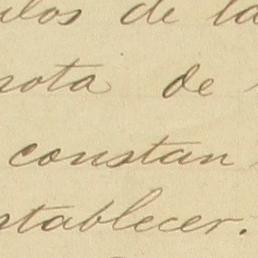 ulos de la
nota de
constan
stablecer.